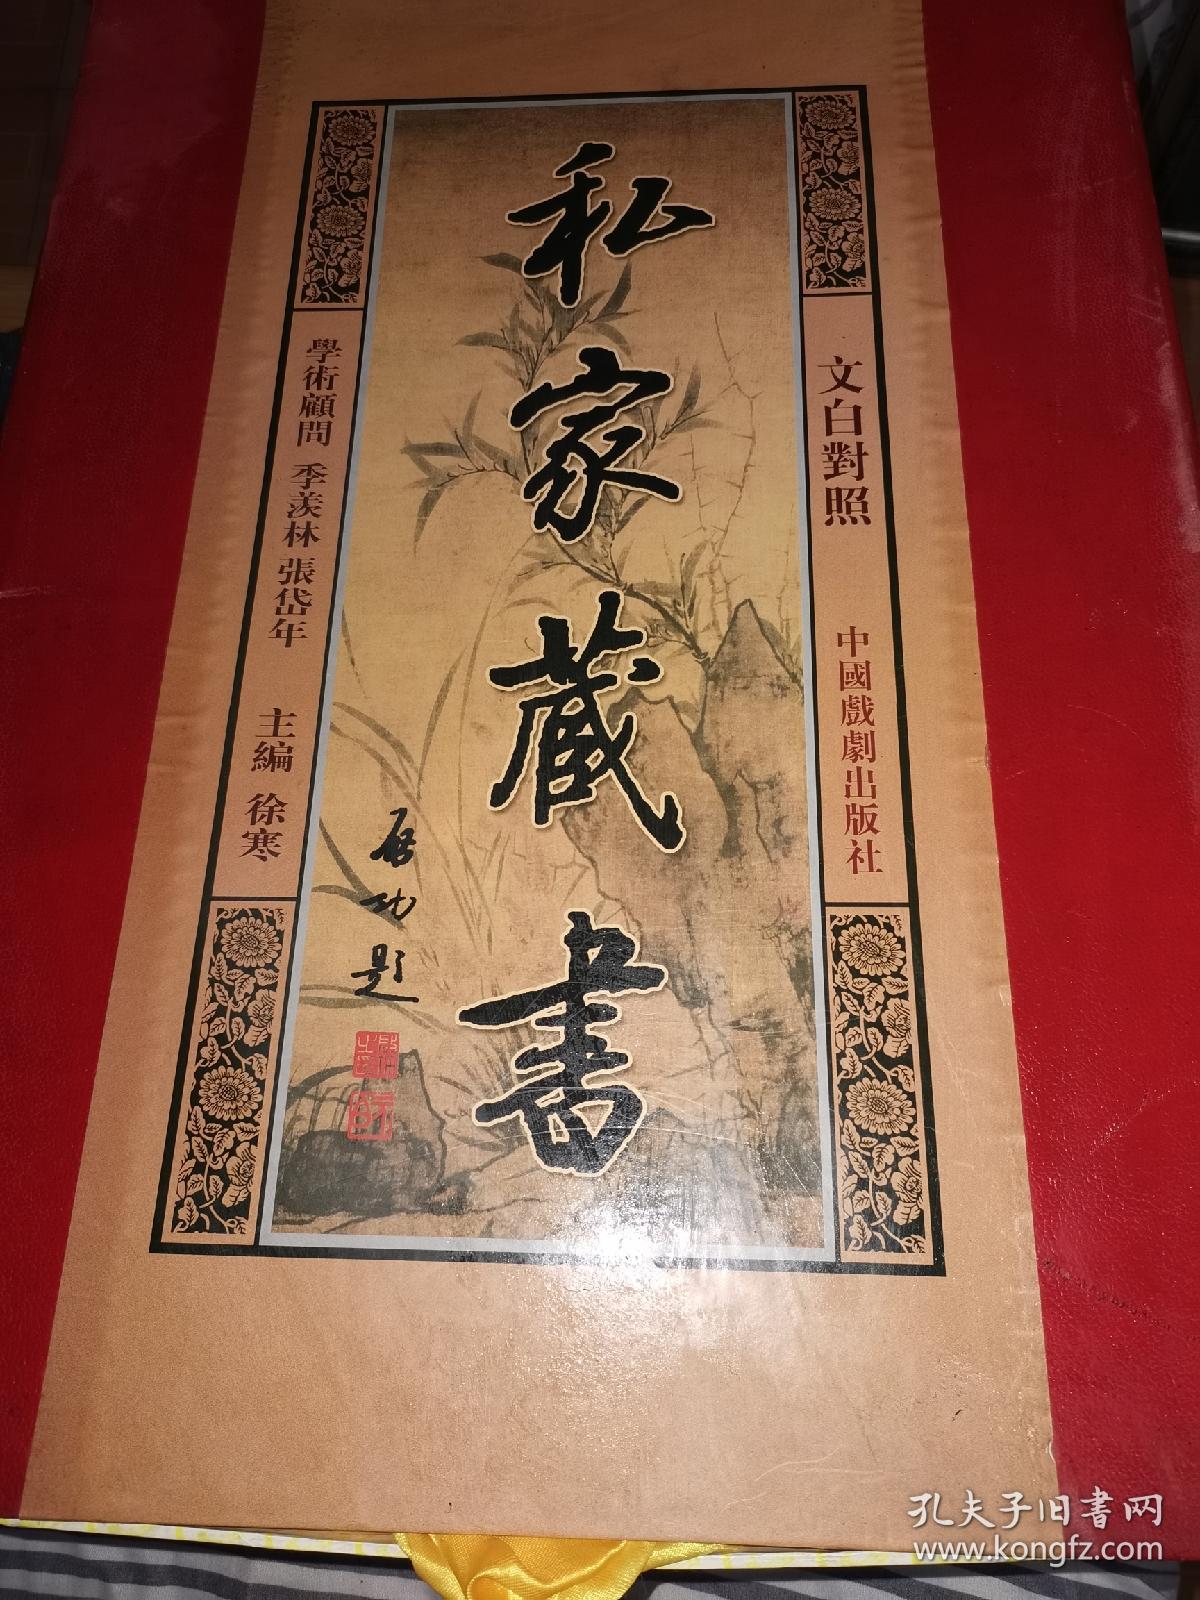 文白對照
中國戲劇出版社
私家蔵书
启功题
學術顧問 季羨林 張岱年
主編 徐寒
孔夫子旧書网
www.kongfz.com